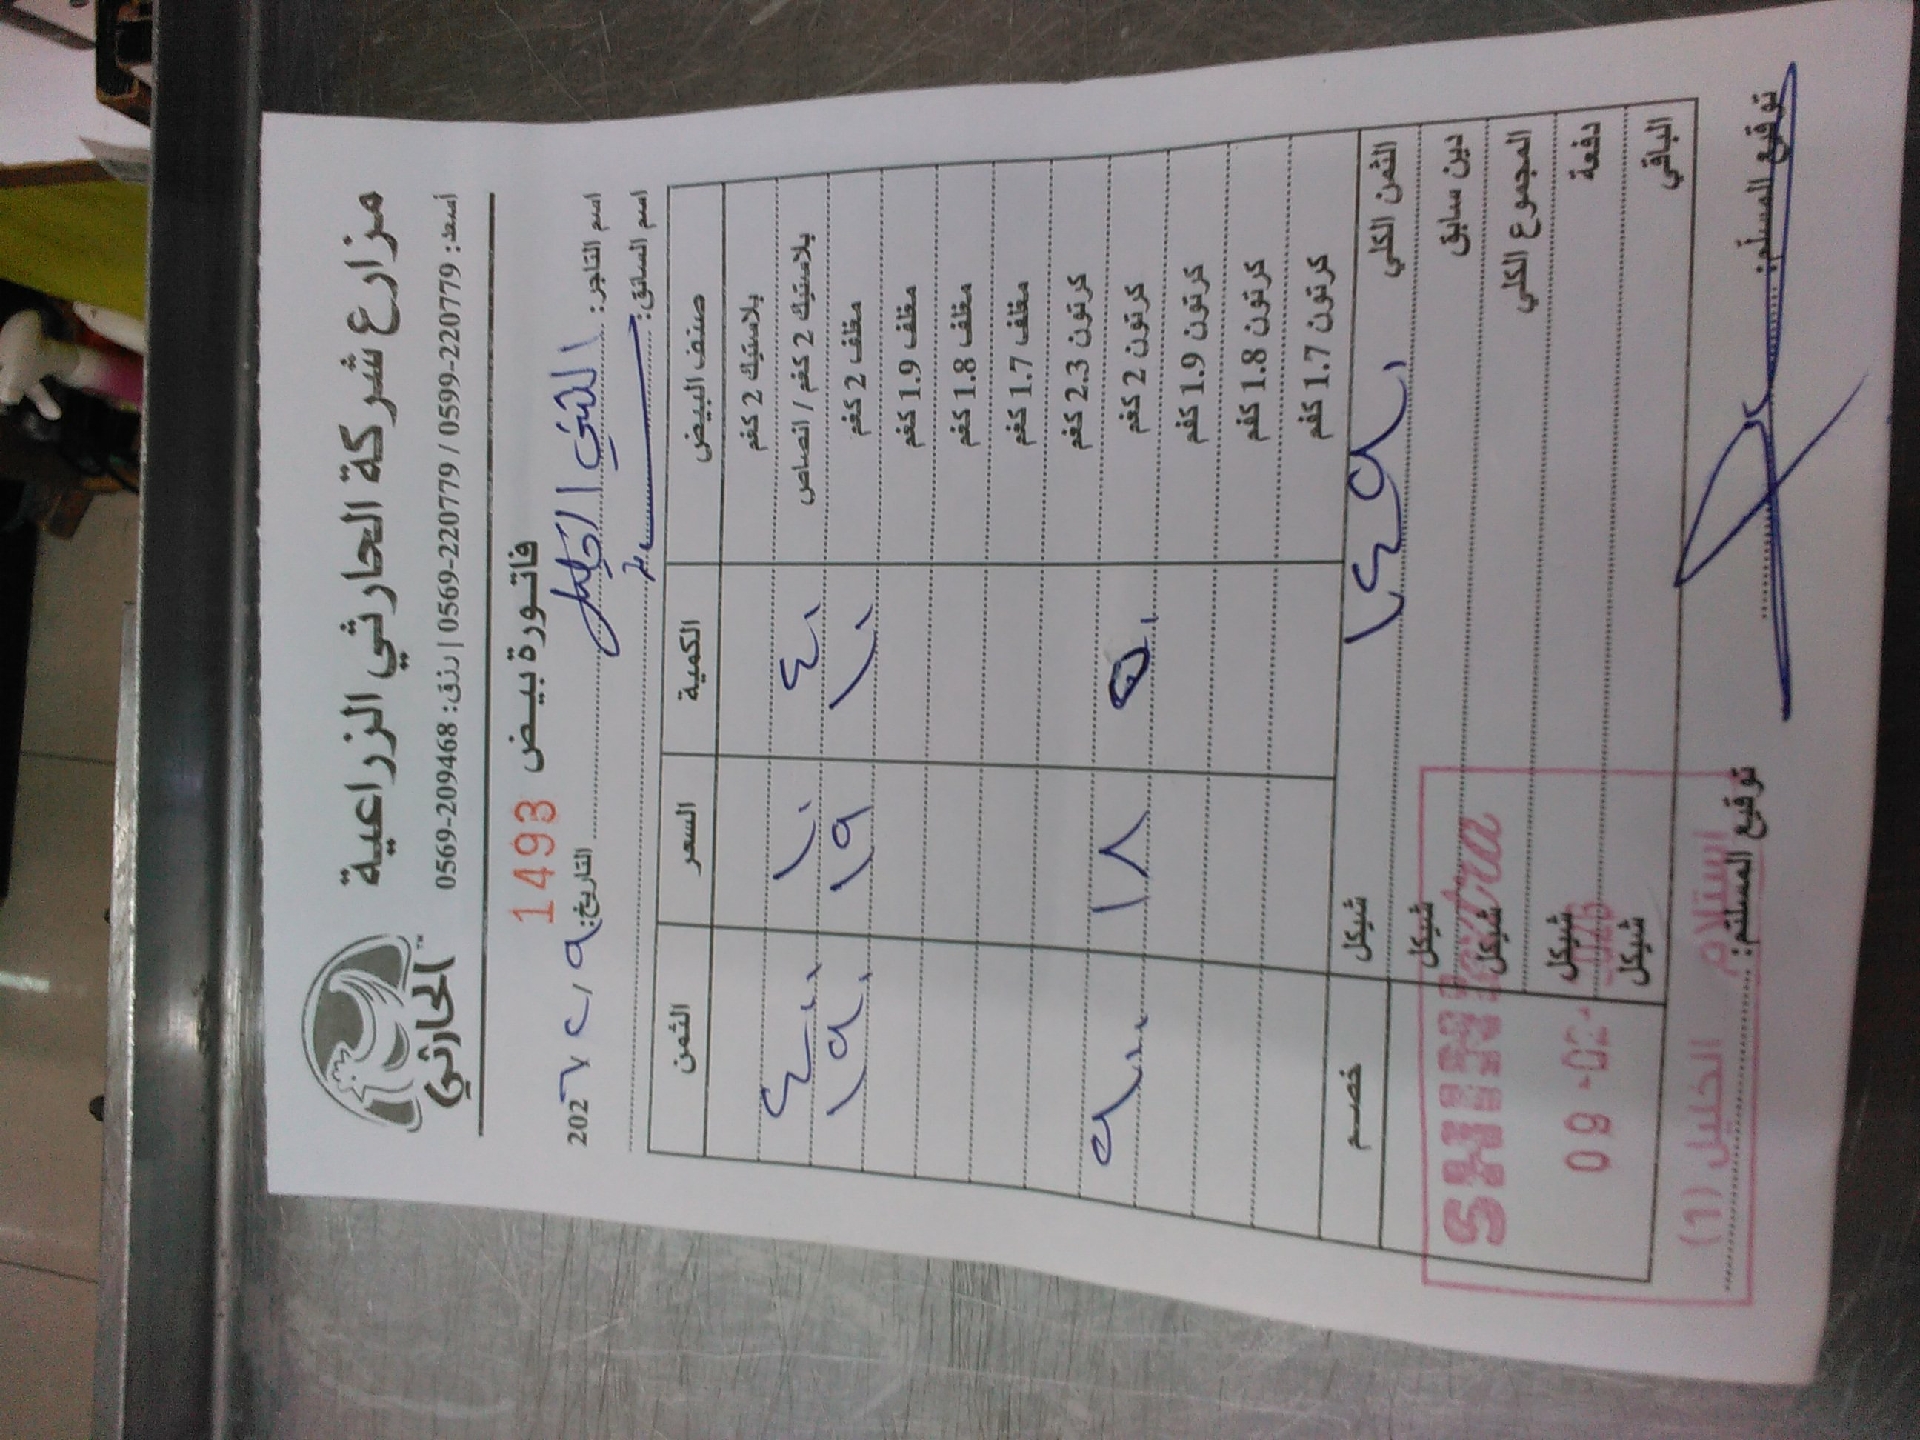 مزارع شركة الحارثي الزراعية
الحارثي™
أسعد: 0599-220779 / 0569-220779 | رزق: 0569-209468
فاتورة بيض 1493
اسم التاجر: الشني الخليل التاريخ: ٩ / ٢ / 202٦
اسم السائق:
صنف البيض الكمية السعر الثمن
بلاستيك 2 كغم
بلاستيك 2 كغم / انصاص ٤٠ ١٠ ٤٠٠
مغلف 2 كغم ١٠ ١٩ ١٩٠
مغلف 1.9 كغم
مغلف 1.8 كغم
مغلف 1.7 كغم
كرتون 2.3 كغم
كرتون 2 كغم ٥٠ ١٨ ٩٠٠
كرتون 1.9 كغم
كرتون 1.8 كغم
كرتون 1.7 كغم
الثمن الكلي ١٤٩٠ شيكل خصم
دين سابق شيكل
المجموع الكلي شيكل
دفعة شيكل
الباقي شيكل
توقيع المسلّم: توقيع المستلم:
extra
09 -02-
استلام الخليل (1)